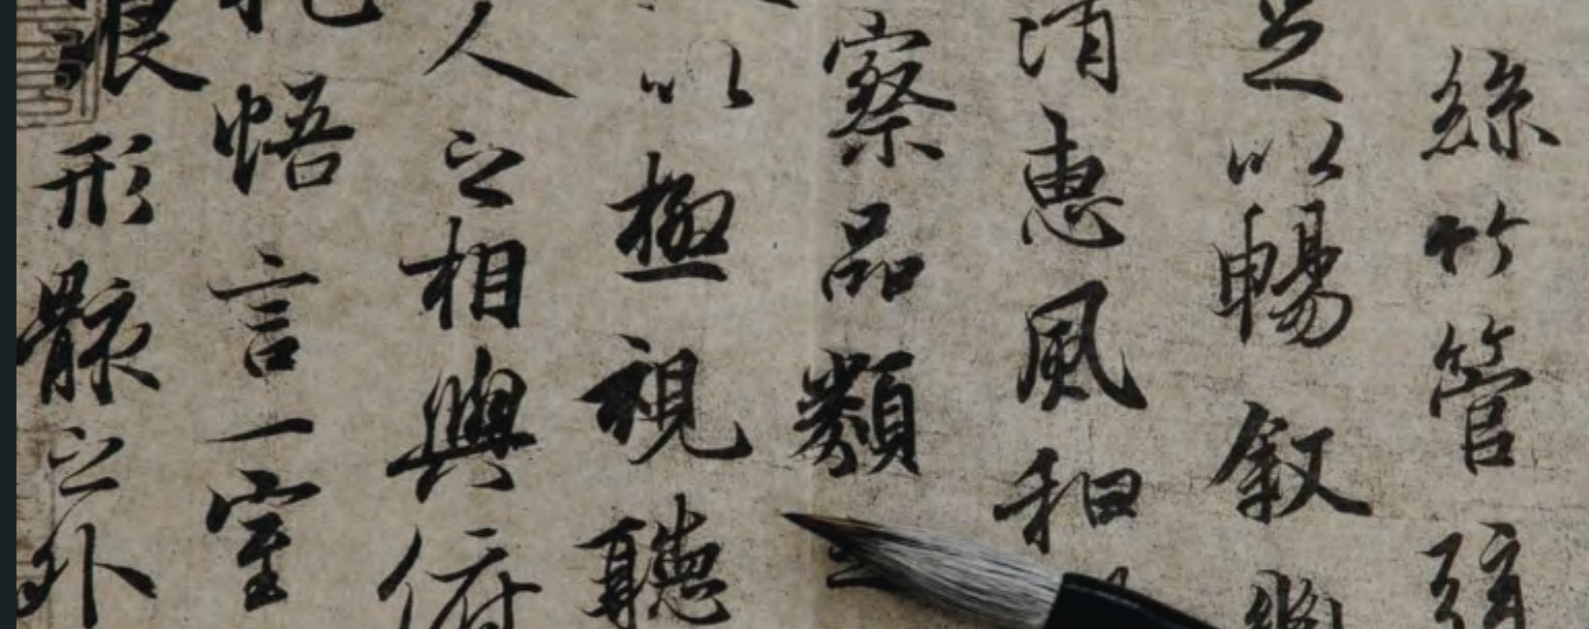 絲竹管弦
足以暢叙幽
清惠風和
察品類
以極視聽
人之相與俯
悟言一室
浪形骸之外